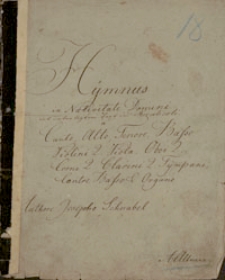 18
Hymnus
in Nativitate Domini
a
Canto Alto Tenore Basso
Violini 2 Viola Oboi 2
Corni 2 Clarini 2 Tÿmpana
Basso & Organo
Josepho Schnabel